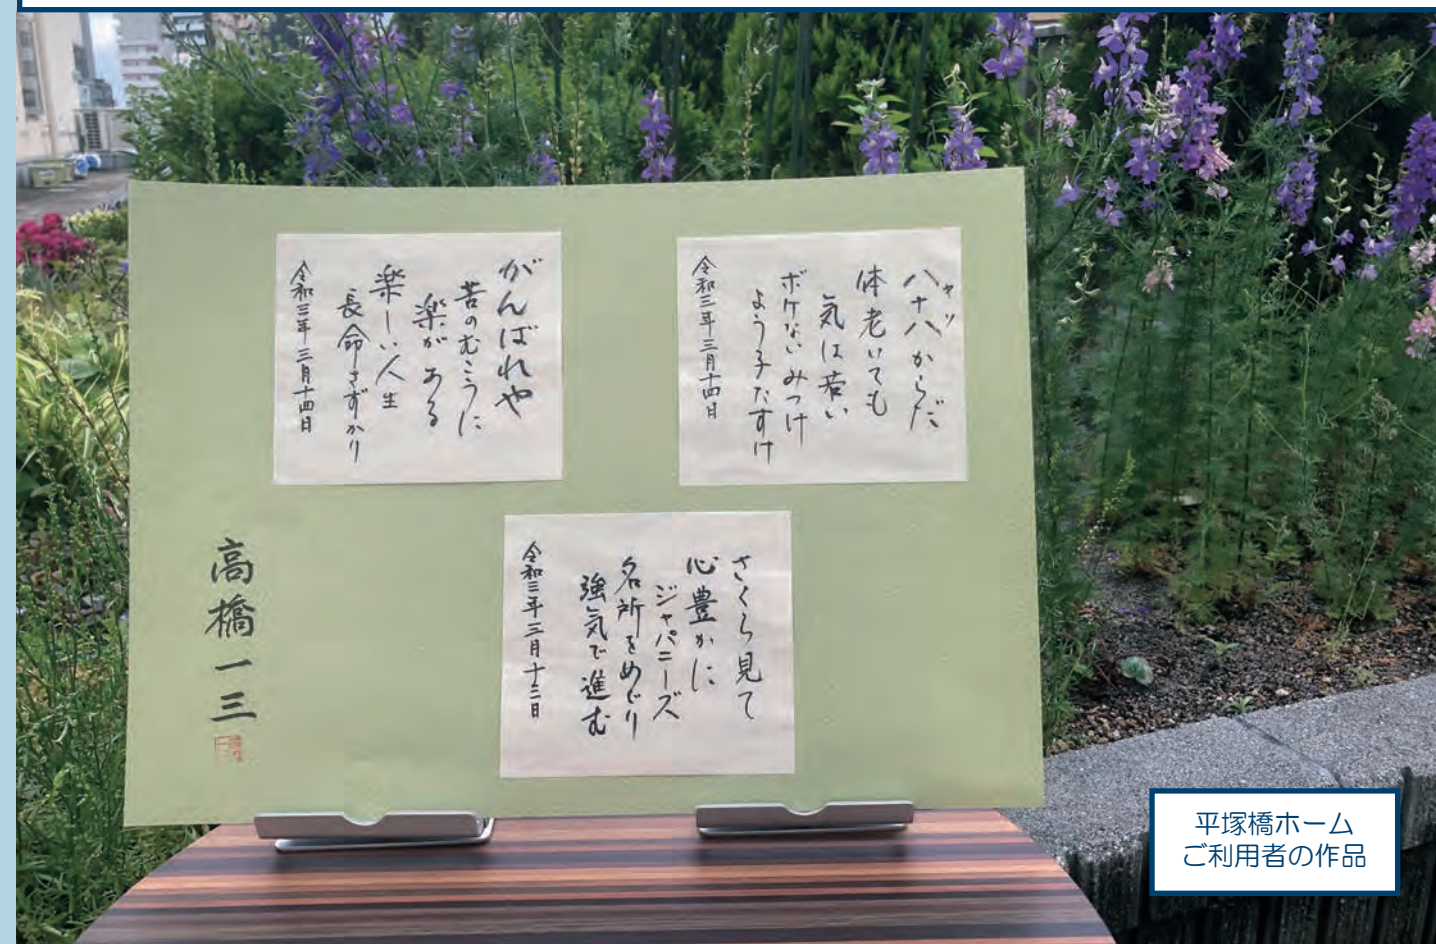 八十八からだ
体老いても
気は若い
ボケないみつけ
よう子たすけ
令和三年三月十四日
がんばれや
苦のむこうに
楽がある
楽しい人生
長命さずかり
令和三年三月十四日
さくら見て
心豊かに
ジャパニーズ
名所をめぐり
強気で進む
令和三年三月十三日
高橋一三
平塚橋ホーム
ご利用者の作品